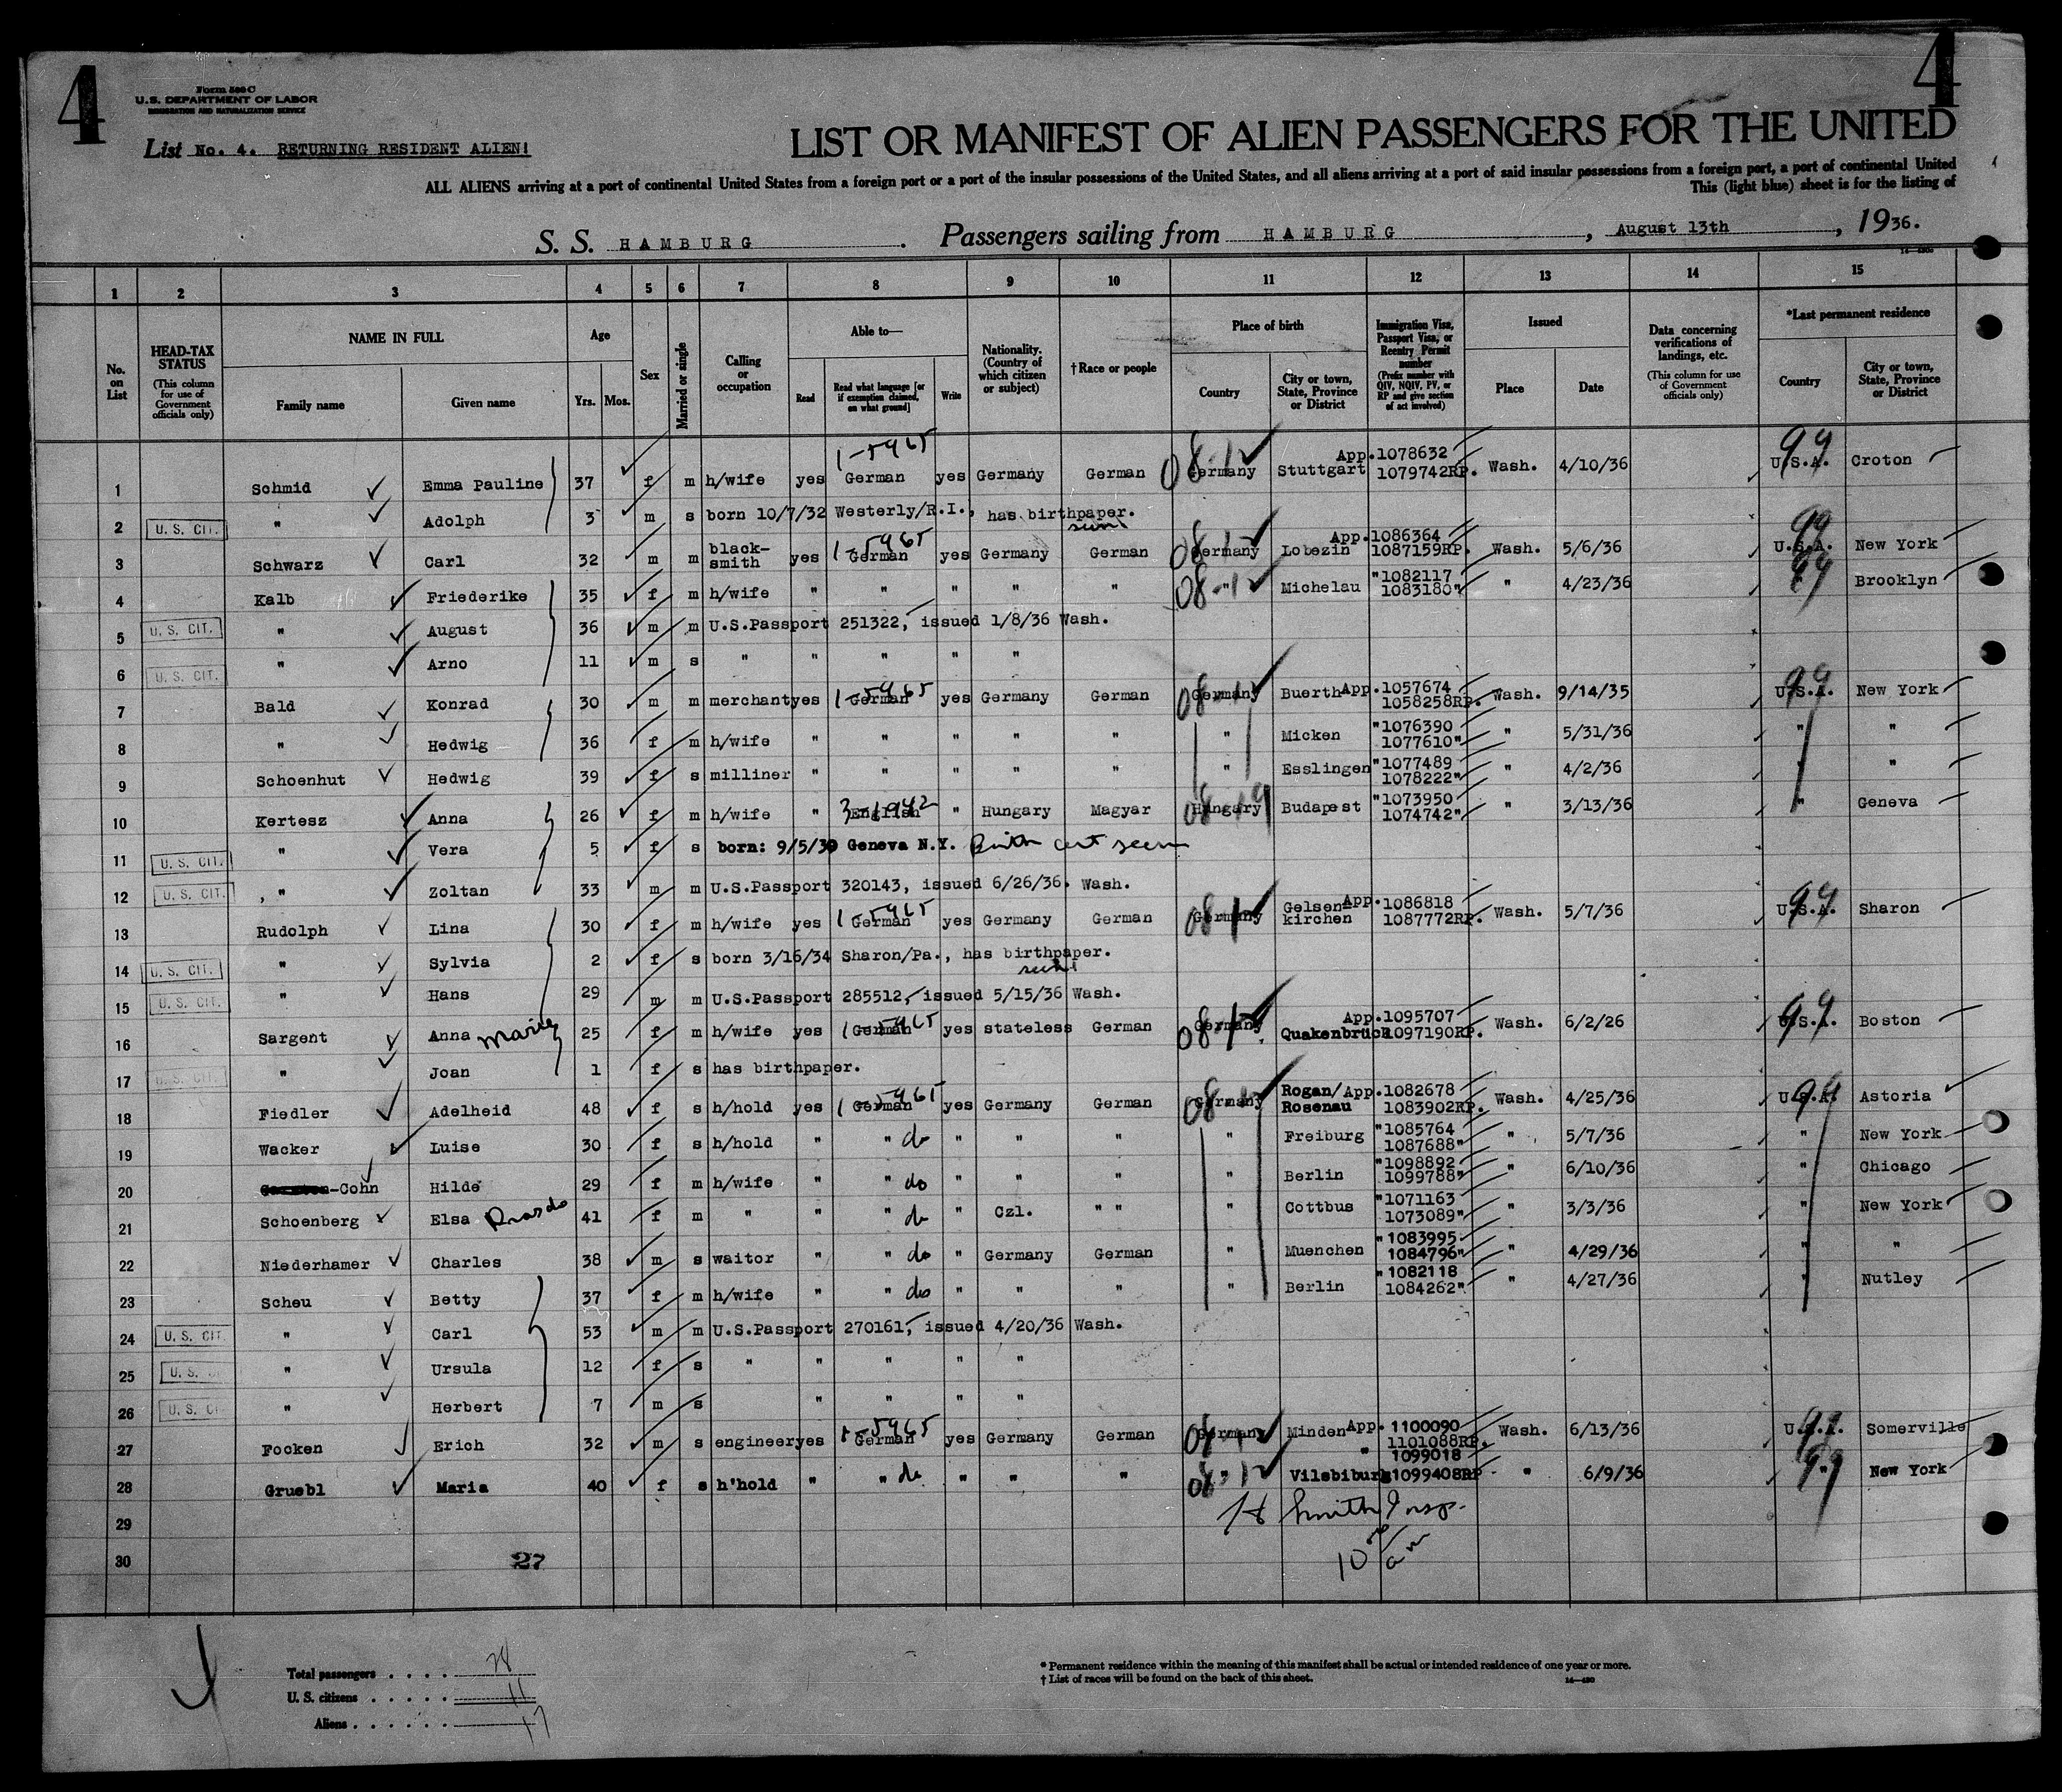 4
4
Form 500 C
U.S. DEPARTMENT OF LABOR
IMMIGRATION AND NATURALIZATION SERVICE
List No. 4. RETURNING RESIDENT ALIEN!
LIST OR MANIFEST OF ALIEN PASSENGERS FOR THE UNITED
ALL ALIENS arriving at a port of continental United States from a foreign port or a port of the insular possessions of the United States, and all aliens arriving at a port of said insular possessions from a foreign port, a port of continental United
This (light blue) sheet is for the listing of
S. S. HAMBURG . Passengers sailing from HAMBURG , August 13th , 1936.
1 2 3 4 5 6 7 8 9 10 11 12 13 14 15
No. on List
HEAD-TAX STATUS (This column for use of Government officials only)
NAME IN FULL
Family name
Given name
Age
Yrs.
Mos.
Sex
Married or single
Calling or occupation
Able to—
Read
Read what language [or if exemption claimed, on what ground]
Write
Nationality. (Country of which citizen or subject)
† Race or people
Place of birth
Country
City or town, State, Province or District
Immigration Visa, Passport Visa, or Reentry Permit number (Prefix number with QIV, NQIV, PV, or RP and give section of act involved)
Issued
Place
Date
Data concerning verifications of landings, etc. (This column for use of Government officials only)
*Last permanent residence
Country
City or town, State, Province or District
1 Schmid Emma Pauline 37 f m h/wife yes 1-5965 German yes Germany German 08-12 Germany Stuttgart App.1078632 1079742RP. Wash. 4/10/36 99 U.S.A. Croton
2 U. S. CIT. " Adolph 3 m s born 10/7/32 Westerly/R.I., has birthpaper. seen
3 Schwarz Carl 32 m m black-smith yes 1-5965 German yes Germany German 08-12 Germany Lobezin App.1086364 1087159RP. Wash. 5/6/36 99 U.S.A. New York
4 Kalb Friederike 35 f m h/wife " " " " " 08-12 " Michelau "1082117 1083180" " 4/23/36 99 Brooklyn
5 U. S. CIT. " August 36 m m U.S.Passport 251322, issued 1/8/36 Wash.
6 U. S. CIT. " Arno 11 m s " " " " "
7 Bald Konrad 30 m m merchant yes 1-5965 German yes Germany German 08-12 Germany Buerth App.1057674 1058258RP. Wash. 9/14/35 99 U.S.A. New York
8 " Hedwig 36 f m h/wife " " " " " " Micken "1076390 1077610" " 5/31/36 " "
9 Schoenhut Hedwig 39 f s milliner " " " " " " Esslingen "1077489 1078222" " 4/2/36 " "
10 Kertesz Anna 26 f m h/wife " 3-1942 English " Hungary Magyar 08-19 Hungary Budapest "1073950 1074742" " 3/13/36 " Geneva
11 U. S. CIT. " Vera 5 f s born: 9/5/30 Geneva N.Y. Birth cert seen
12 U. S. CIT. , " Zoltan 33 m m U.S.Passport 320143, issued 6/26/36. Wash.
13 Rudolph Lina 30 f m h/wife yes 1-5965 German yes Germany German 08-12 Germany Gelsen kirchen App.1086818 1087772RP. Wash. 5/7/36 99 U.S.A. Sharon
14 U. S. CIT. " Sylvia 2 f s born 3/16/34 Sharon/Pa., has birthpaper. seen
15 U. S. CIT. " Hans 29 m m U.S.Passport 285512, issued 5/15/36 Wash.
16 Sargent Anna Marie 25 f m h/wife yes 1-5965 German yes stateless German 08-12 Germany Quakenbrück App.1095707 1097190RP. Wash. 6/2/26 99 U.S.A. Boston
17 U. S. CIT. " Joan 1 f s has birthpaper.
18 Fiedler Adelheid 48 f s h/hold yes 1-5965 German yes Germany German 08-12 Germany Rogan/Rosenau App.1082678 1083902RP. Wash. 4/25/36 99 U.S.A. Astoria
19 Wacker Luise 30 f s h/hold " " do " " " " Freiburg "1085764 1087688" " 5/7/36 " New York
20 -Cohn Hilde 29 f m h/wife " " do " " " " Berlin "1098892 1099788" " 6/10/36 " Chicago
21 Schoenberg Elsa 41 f m " " " do " Czl. " " " Cottbus "1071163 1073089" " 3/3/36 " New York
22 Niederhamer Charles 38 m s waitor " " do " Germany German " Muenchen "1083995 1084796" " 4/29/36 " "
23 Scheu Betty 37 f m h/wife " " do " " " " Berlin "1082118 1084262" " 4/27/36 " Nutley
24 U. S. CIT. " Carl 53 m m U.S.Passport 270161, issued 4/20/36 Wash.
25 U. S. " Ursula 12 f s " " " " "
26 U. S. CI " Herbert 7 m s " " " "
27 Focken Erich 32 m s engineer yes 1-5965 German yes Germany German 08-12 Germany Minden App. 1100090 1101088RP. Wash. 6/13/36 99 U.S.A. Somerville
28 Gruebl Maria 40 f s h'hold " " do " " " 08-12 " Vilsbiburg " 1099018 1099408RP " 6/9/36 99 " New York
29 Smith Insp.
30 27 10 am
Total passengers . . . . 28
U. S. citizens . . . . . 11
Aliens . . . . . . 17
* Permanent residence within the meaning of this manifest shall be actual or intended residence of one year or more.
† List of races will be found on the back of this sheet.